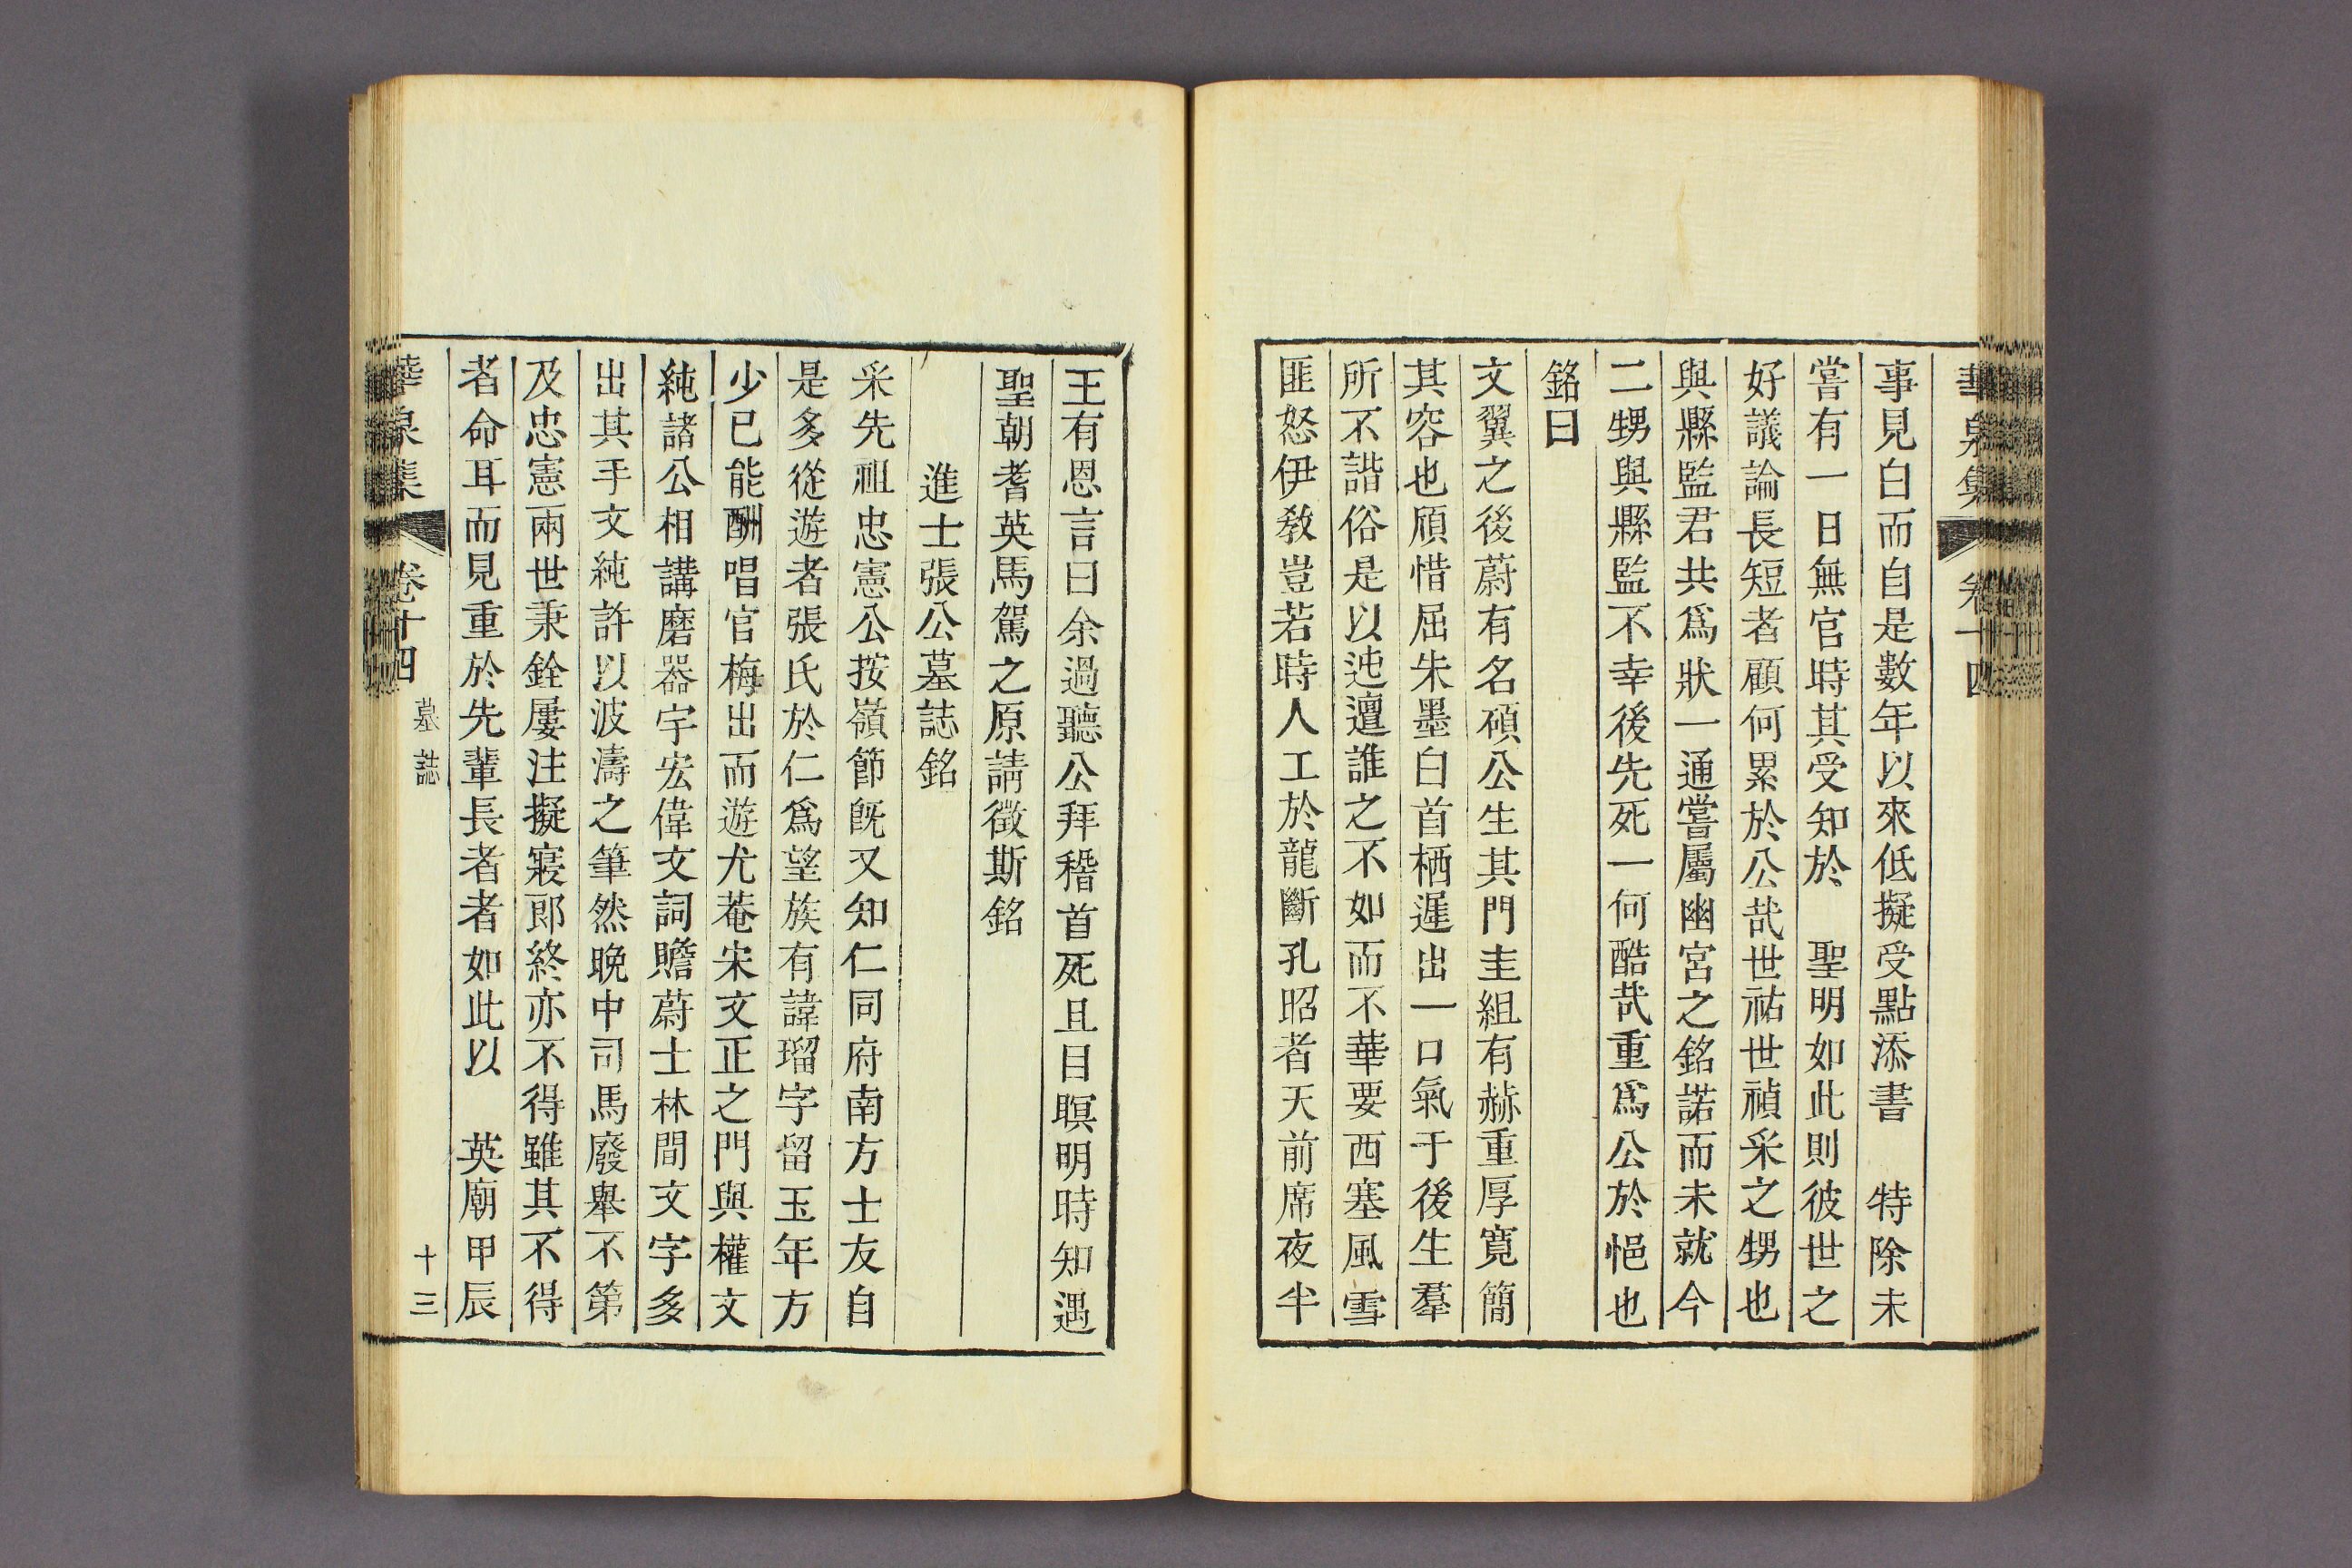 事見白而自是數年以來低擬受點添書　特除未
嘗有一日無官時其受知於　聖明如此則彼世之
好議論長短者顧何累於公哉世祐世禎采之甥也
與縣監君共爲狀一通嘗屬幽宮之銘諾而未就今
二甥與縣監不幸後先死一何酷哉重爲公於悒也
銘曰
文翼之後蔚有名碩公生其門圭組有赫重厚寬簡
其容也頎惜屈朱墨白首栖遲出一口氣于後生羣
所不諧俗是以迍邅誰之不如而不華要西塞風雪
匪怒伊教豈若時人工於龍斷孔昭者天前席夜半
王有恩言曰余過聽公拜稽首死且目瞑明時知遇
聖朝耆英馬鬣之原請徵斯銘
進士張公墓誌銘
采先祖忠憲公按嶺節旣又知仁同府南方士友自
是多從遊者張氏於仁爲望族有諱瑠字留玉年方
少已能酬唱官梅出而遊尤菴宋文正之門與權文
純諸公相講磨器宇宏偉文詞贍蔚士林間文字多
出其手文純許以波濤之筆然晩中司馬廢舉不第
及忠憲兩世秉銓屢注擬寢郎終亦不得雖其不得
者命耳而見重於先輩長者者如此以　英廟甲辰
華泉集　卷十四　墓誌　十三